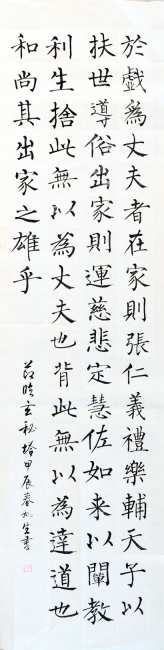 於戲為丈夫者在家則張仁義禮樂輔天子以
扶世導俗出家則運慈悲定慧佐如来以闡教
利生捨此無以為丈夫也背此無以為達道也
和尚其出家之雄乎
玄秘塔甲辰春